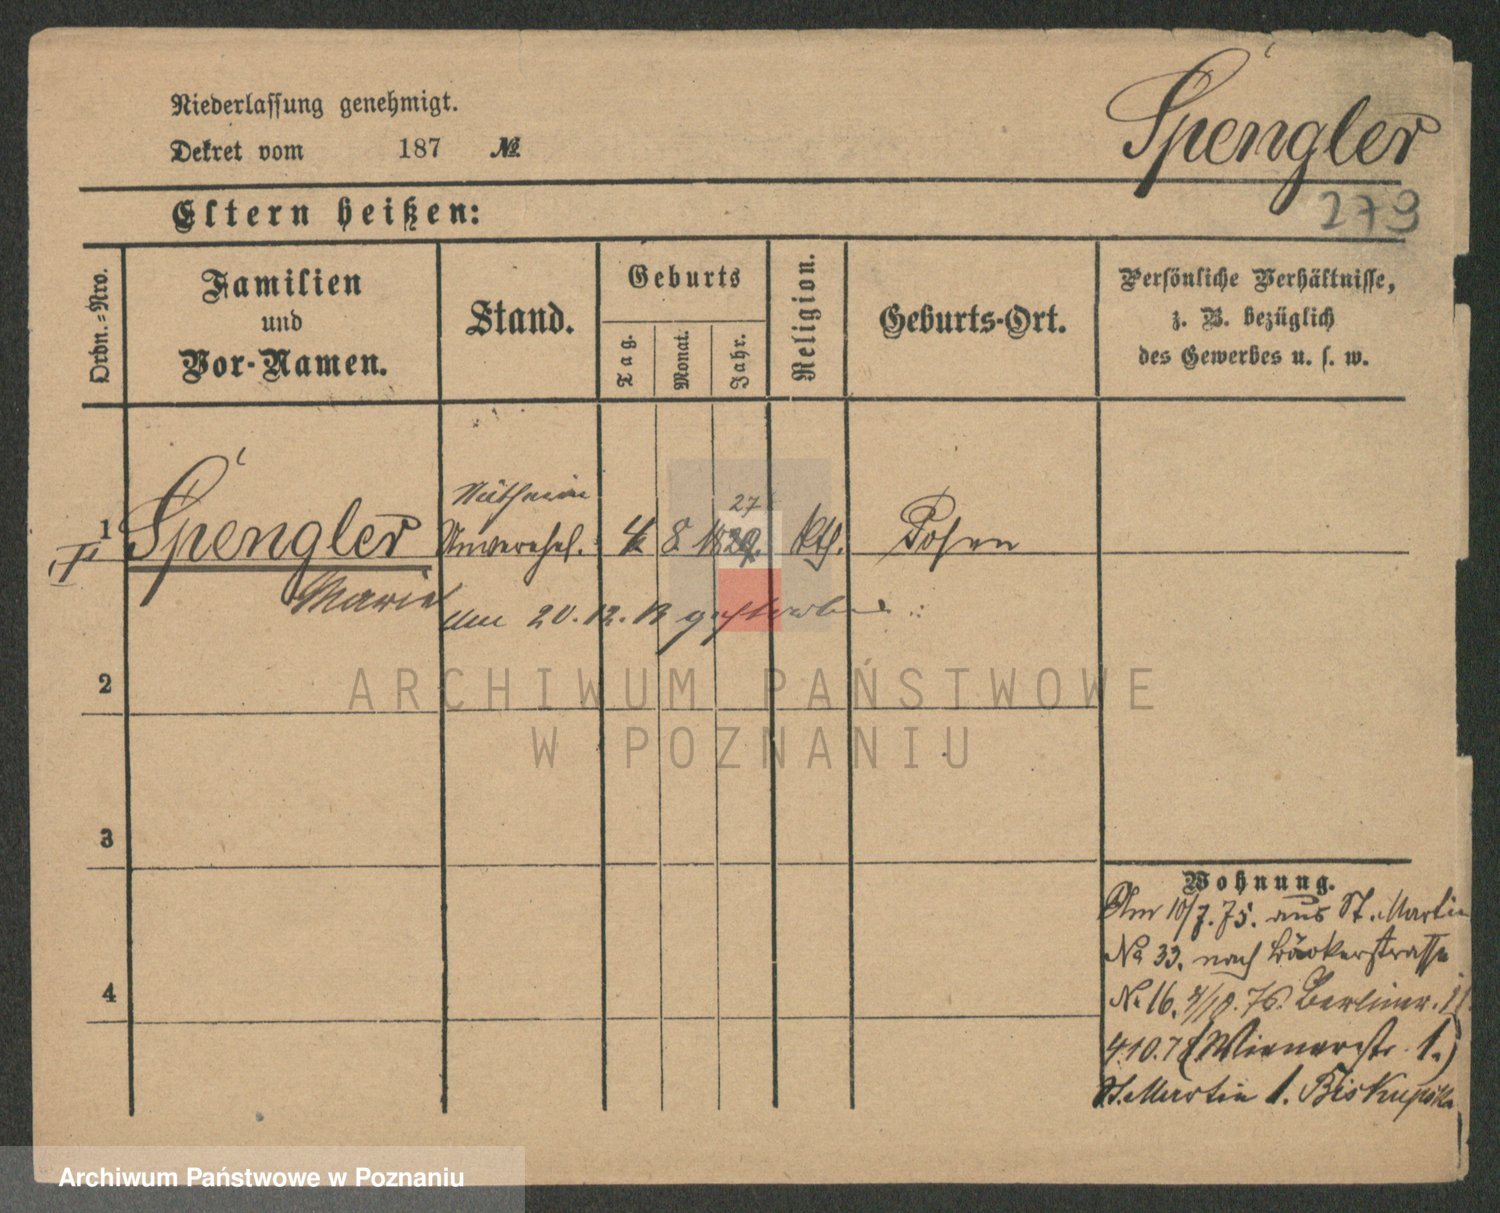 Niederlassung genehmigt.
Dekret vom 187 №
Spengler
279
Eltern heißen:
Ordn.-Nro.
Familien
und
Vor-Namen.
Stand.
Geburts
Tag.
Monat.
Jahr.
Religion.
Geburts-Ort.
Persönliche Verhältnisse,
z. B. bezüglich
des Gewerbes u. s. w.
27
1 Spengler Unverehel. 4 8 1829. kth. Posen
Marie
am 20. 12. gestorben
ARCHIWUM PAŃSTWOWE
W POZNANIU
2
3
4
Wohnung.
Am 10/7. 75. aus St. Martin
No 33. nach Bäckerstrasse
No 16. 4/10. 76. Berliner.
4.10.78 (Wienerstr. 1.)
St. Martin 1. Biskupska
Archiwum Państwowe w Poznaniu